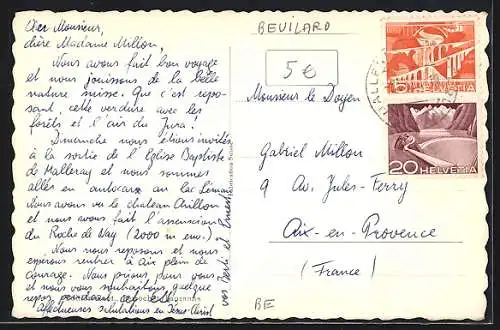 Cher Monsieur,
chère Madame Millon,
Nous avons fait bon voyage
et nous jouissons de la belle
nature suisse. Que c'est repo-
sant, cette verdure avec les
forêts et l'air du Jura !
Dimanche nous étions invités
à la sortie de l'Eglise Baptiste
de Malleray et nous sommes
allés en autocar au lac Léman
Nous avons vu le château Chillon
et nous avons fait l'ascension
du Roche de Nay (2000 m env.)
Nous nous reposons et nous
espérons rentrer à Aix plein de
courage. Nous prions pour vous
et nous vous souhaitons quelque
repos pendant
Affectueuses salutations en Jésus-Christ
vos et Ernest
BEVILARD
5 €
Monsieur le Doyen
Gabriel Millon
9 Av. Jules-Ferry
Aix-en-Provence
(France)
BE
5
HELVETIA
20 HELVETIA